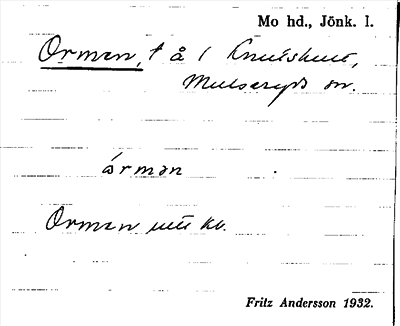 Mo hd., Jönk. l.
Ormen, † å i Knutshult,
Mulseryds sn.
òrmən
Ormen utt kb.
Fritz Andersson 1932.